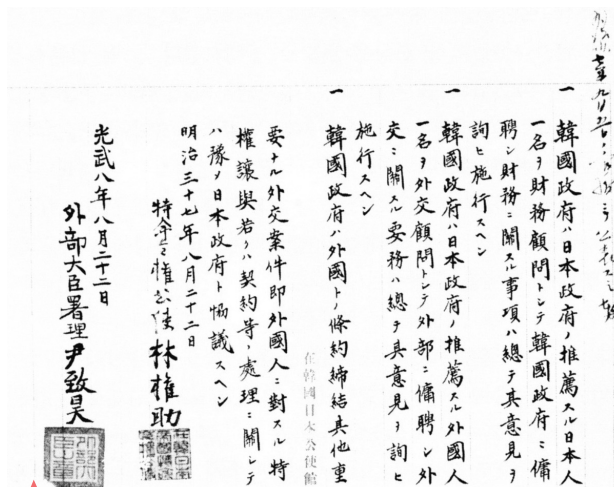 一 韓國政府ハ日本政府ノ推薦スル日本人
一名ヲ財務顧問トシテ韓國政府ニ傭
聘シ財務ニ關スル事項ハ總テ其意見ヲ
詢ヒ施行スヘシ
一 韓國政府ハ日本政府ノ推薦スル外國人
一名ヲ外交顧問トシテ外部ニ傭聘シ外
交ニ關スル要務ハ總テ其意見ヲ詢ヒ
施行スヘシ
一 韓國政府ハ外國トノ條約締結其他重
在韓國日本公使館
要ナル外交案件即外國人ニ對スル特
權讓與若クハ契約等ノ處理ニ關シテ
ハ豫メ日本政府ト協議スヘシ
明治三十七年八月二十二日
特命全權公使 林權助
光武八年八月二十二日
外部大臣署理 尹致昊